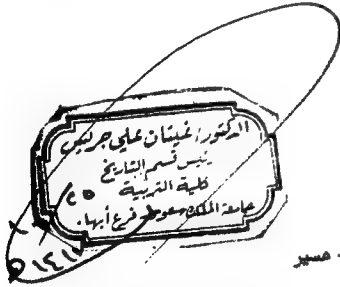 الدكتور/غيثان علي جريس
رئيس قسم التاريخ
كلية التربية
جامعة الملك سعود فرع أبها.
عسير